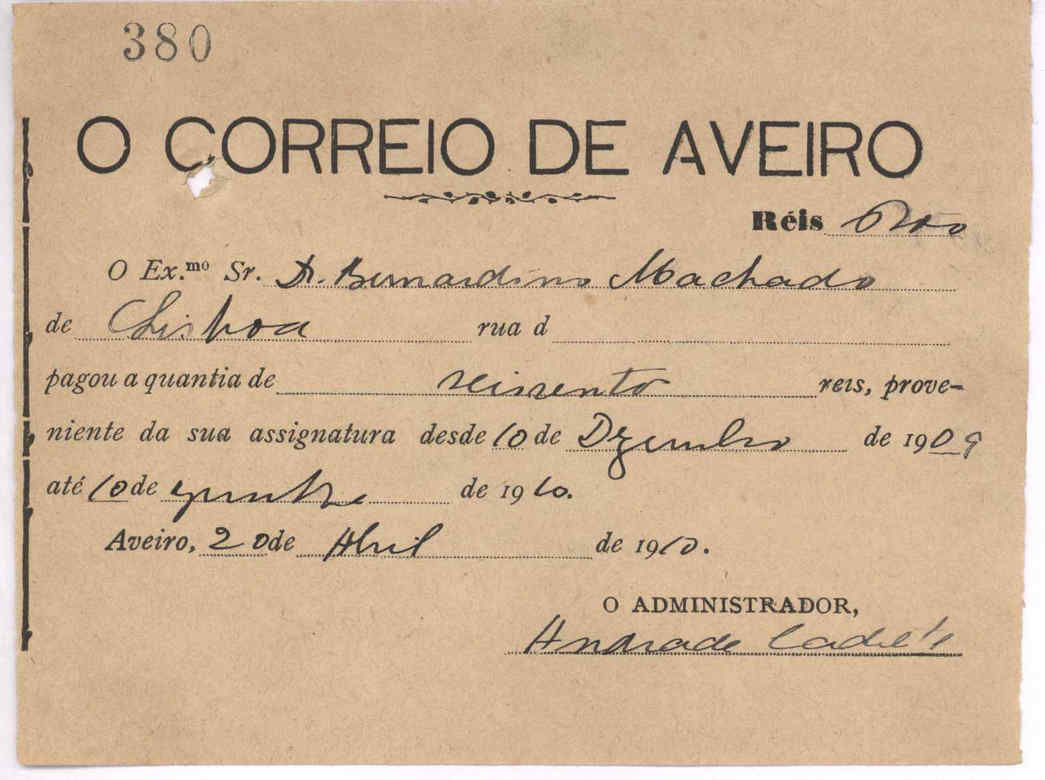 380
O CORREIO DE AVEIRO
Réis 600
O Ex.mo Sr. Dr. Bernardino Machado
de Lisboa rua d
pagou a quantia de seiscentos reis, prove-
niente da sua assignatura desde 10 de Dezembro de 1909
até 10 de de 1910.
Aveiro, 20 de Abril de 1910.
O ADMINISTRADOR,
Andrade